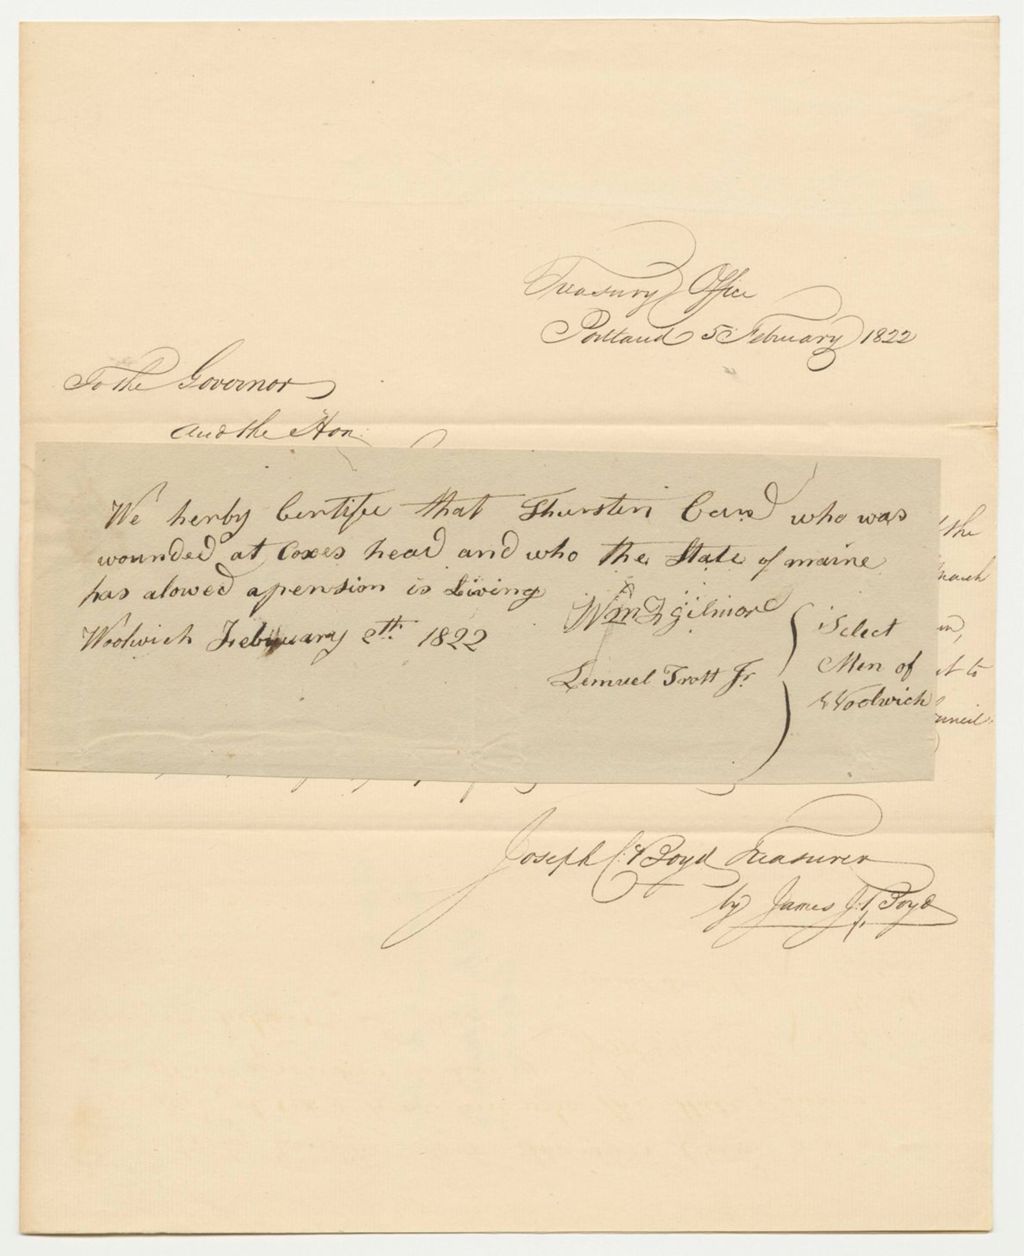 Treasury Office
Portland 5 February 1822
To the Governor
and the Hon.
We herby Certifee that Thursten Card who was
wounded at Coxes head and who the State of maine
has alowed a pension is Living
Woolwich February 2th 1822
Wm Gilmore
Lemuel Trott Jr.
Select
Men of
Woolwich
the
to
Joseph C. Boyd Treasurer
by James J. Boyd